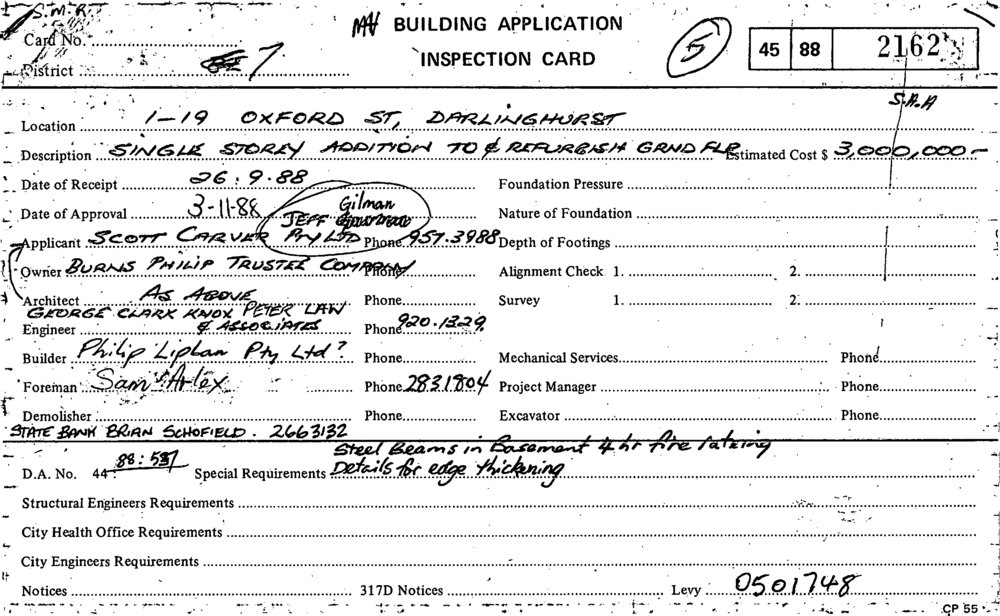 S.M.R.
MH BUILDING APPLICATION
Card No.
INSPECTION CARD
5
45 88 2162
District 7
S.A.A
Location 1-19 OXFORD ST, DARLINGHURST
Description SINGLE STOREY ADDITION TO & REFURBISH GRND FLR Estimated Cost $ 3,000,000-
Date of Receipt 26.9.88 Foundation Pressure
Date of Approval 3-11-88 JEFF Gilman Nature of Foundation
Applicant SCOTT CARVER PTY LTD Phone 957.3988 Depth of Footings
Owner BURNS PHILIP TRUSTEE COMPANY Phone Alignment Check 1. 2.
Architect AS ABOVE Phone Survey 1. 2.
GEORGE CLARK KNOX PETER LAW
Engineer & ASSOCIATES Phone 920.1329
Builder Philip Liplan Pty Ltd? Phone Mechanical Services Phone
Foreman Sam Phone 2831804 Project Manager Phone
Demolisher Phone Excavator Phone
STATE BANK BRIAN SCHOFIELD. 2663132
Steel Beams in Basement 4 hr fire
D.A. No. 44 88:587 Special Requirements Details for edge thickening
Structural Engineers Requirements
City Health Office Requirements
City Engineers Requirements
Notices 317D Notices Levy 0501748
CP 55